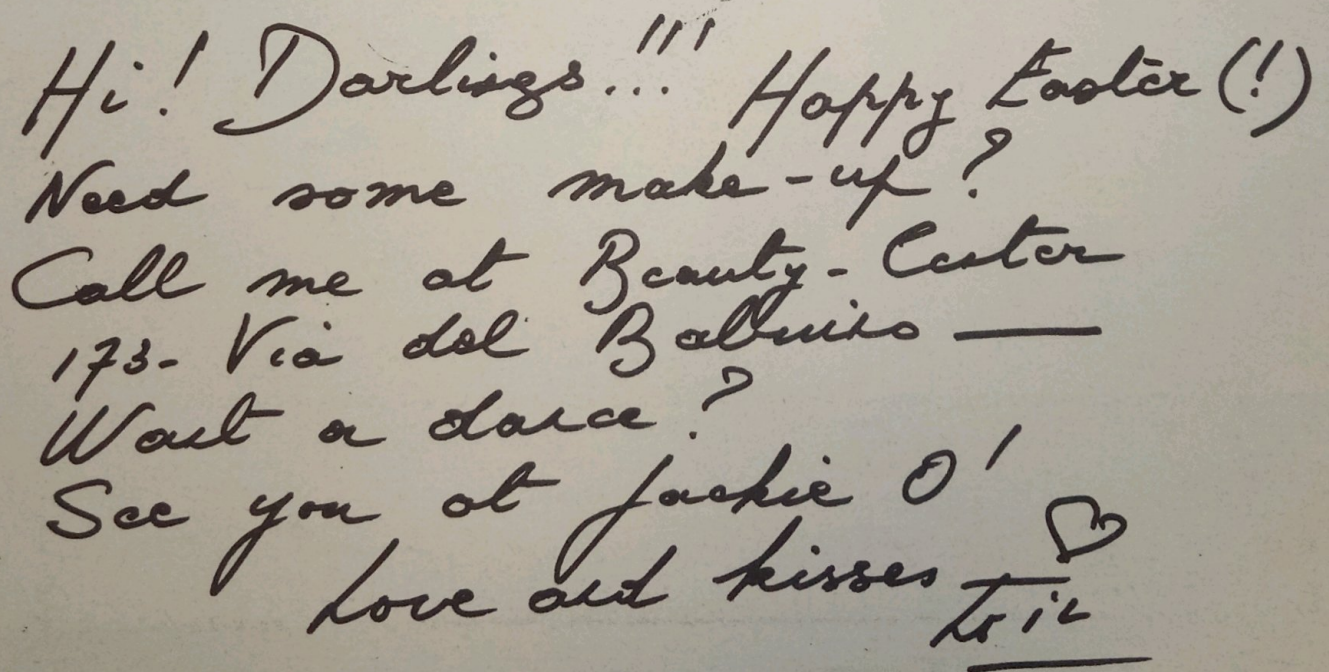 Hi! Darlings...!!! Happy Easter (!)
Need some make-up?
Call me at Beauty-Center
173- Via del Babuino —
Want a dance?
See you at Jackie O'
Love and kisses ♡